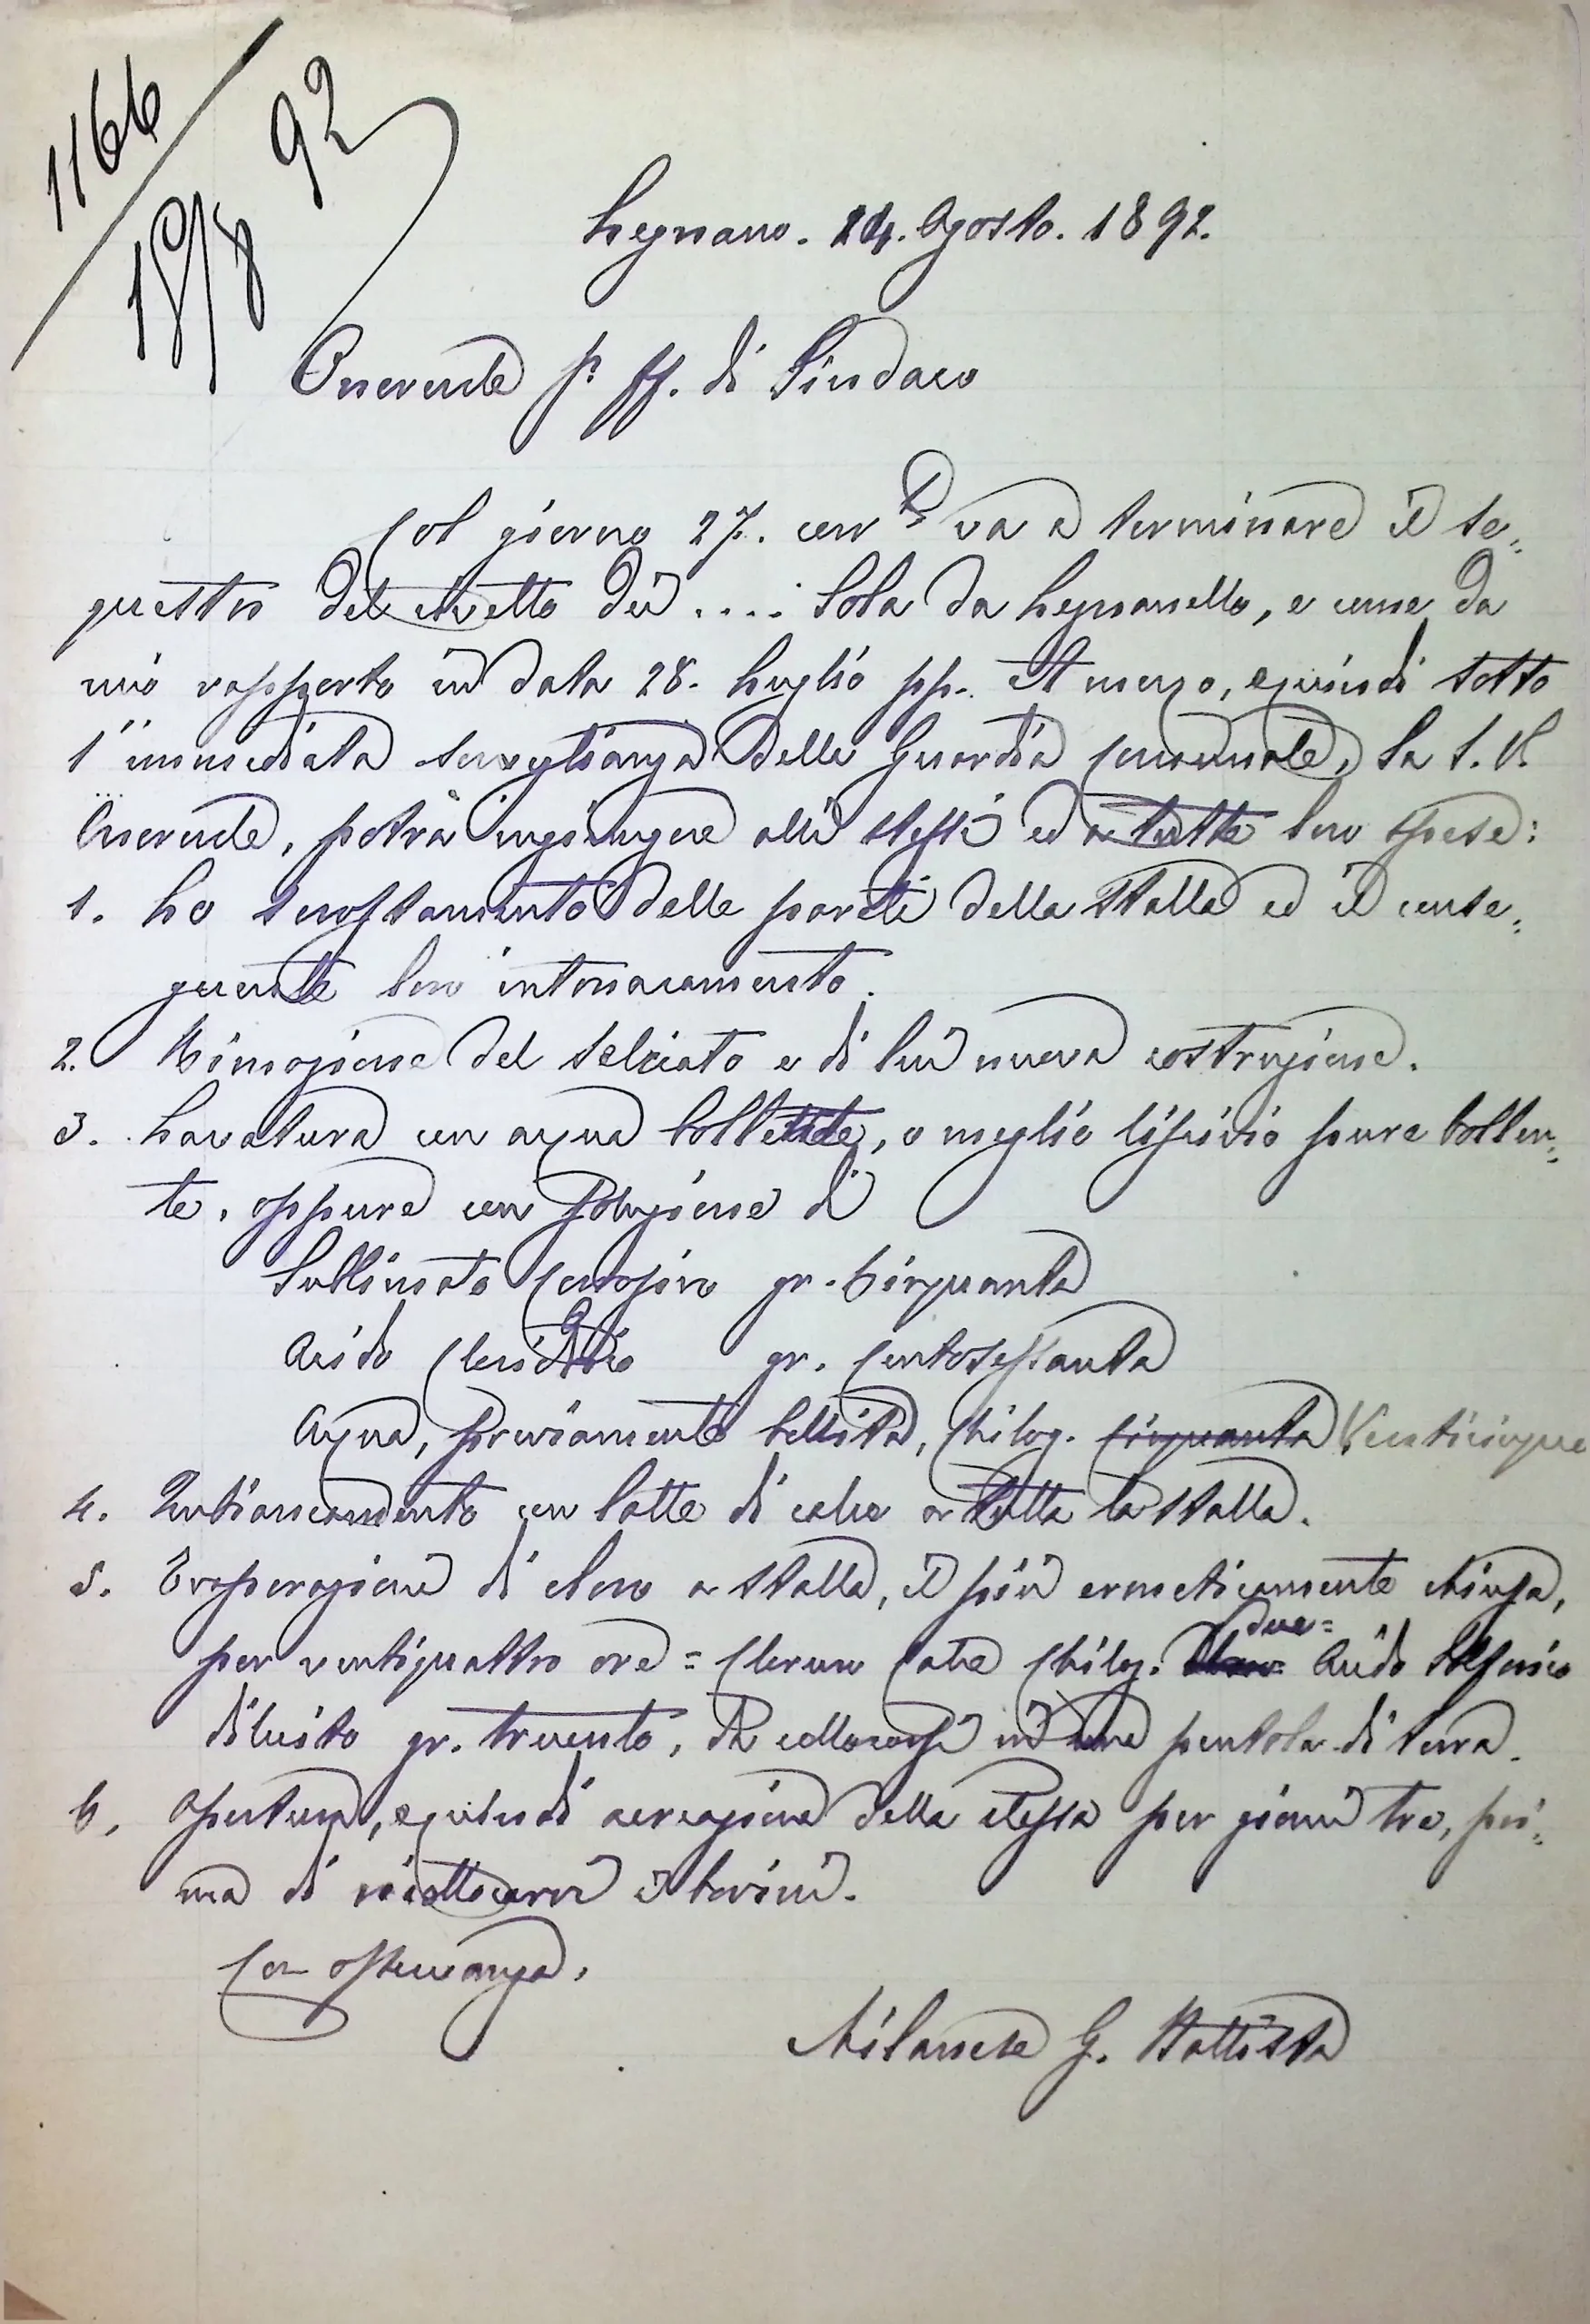 1166
18/8 92
Legnano. 24. Agosto. 1892.
Onorevole Sr. ff. di Sindaco
Col giorno 27. corr.te va a terminare il se=
questro del civetto dei .... Sola da Legnanello, e come da
mio rapporto in data 28. Luglio pp. A mezzo, e quindi sotto
l'immediata sorveglianza della Guardia Comunale, la S. V.
Onorevole, potrà ingiungere alli stessi ed a tutte loro spese:
1. Lo scrostamento delle pareti della stalla ed il conse=
guente loro intonacamento.
2. Rimozione del selciato e di lui nuova costruzione.
3. Lavatura con acqua bollente, o meglio liscivio pure bollen=
te, oppure con soluzione di
Sublimato Corrosivo gr. Cinquanta
Acido Cloridrico gr. Centosessanta
Acqua, previamente bollita, Chilog. Cinquanta Venticinque
4. Imbiancamento con latte di calce a tutta la stalla.
5. Evaporazione di cloro a stalla, il più ermeticamente chiusa,
per ventiquattro ore = Cloruro Calce Chilog. due= Acido Solforico
diluito gr. trecento, da collocarsi in una pentola di terra.
6. Apertura, e quindi aereazione della stessa per giorni tre, pri=
ma di ricollocarvi i bovini.
Con osservanza,
Milanese G. Battista